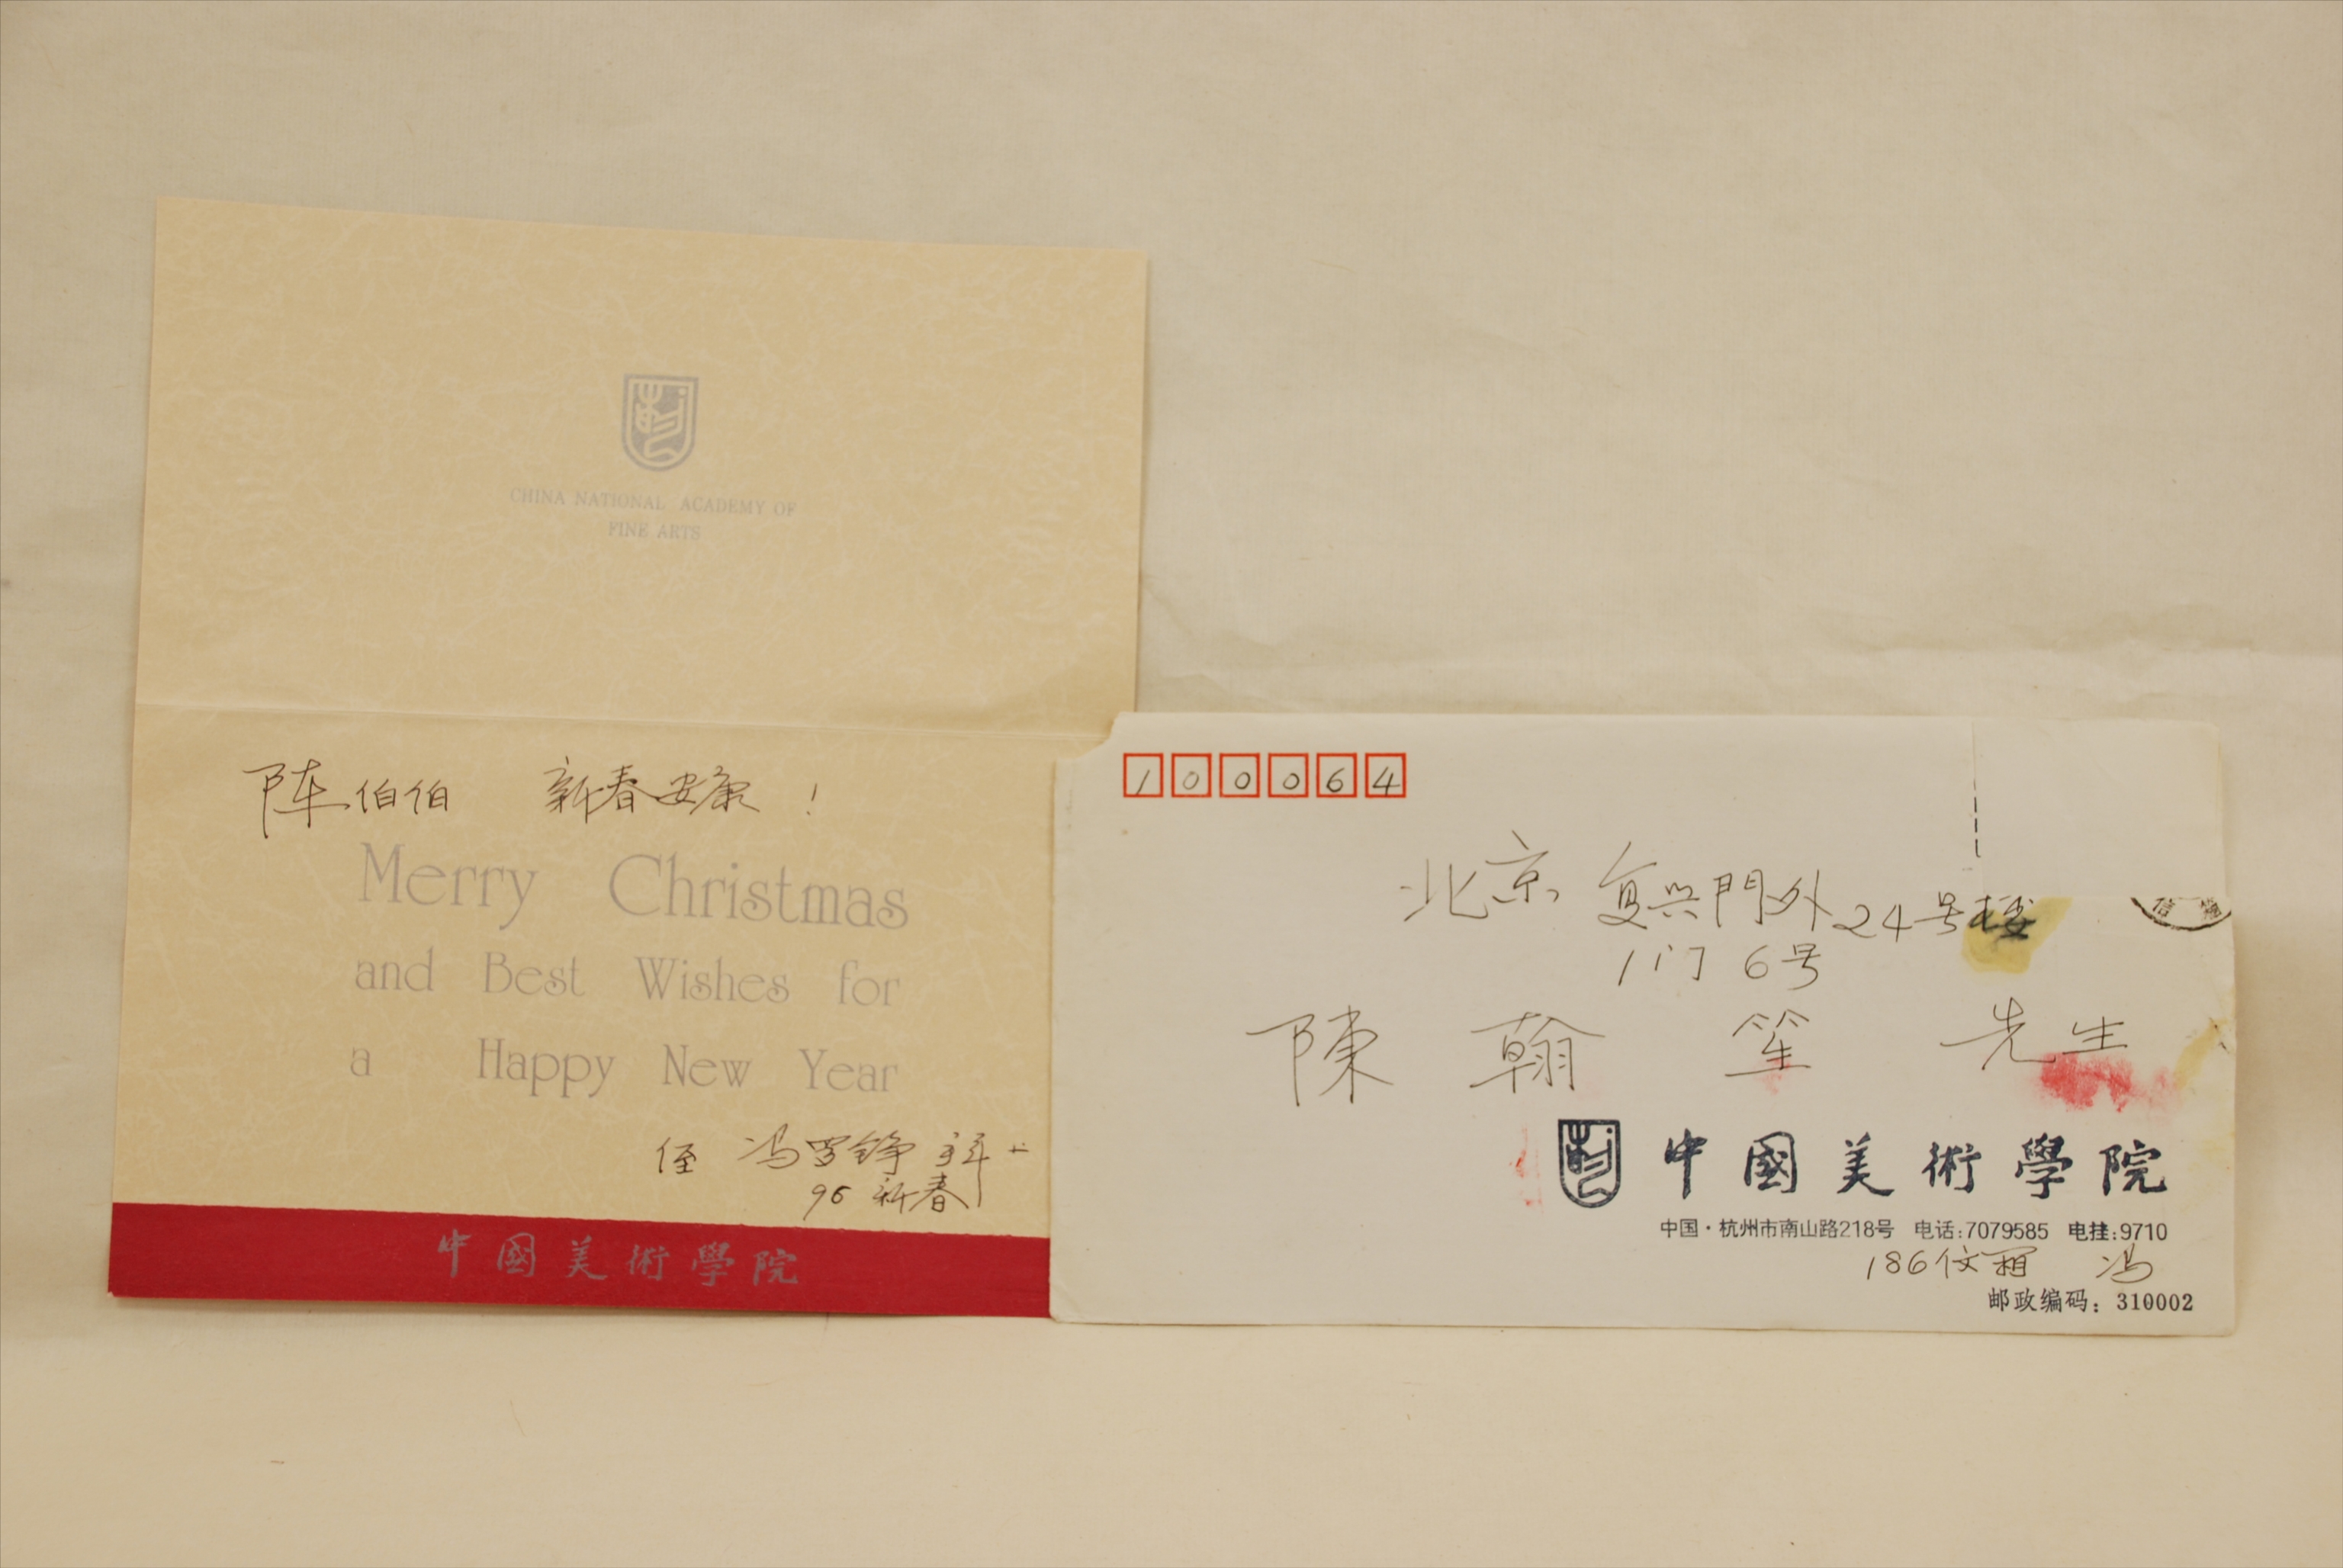 CHINA NATIONAL ACADEMY OF
FINE ARTS
陈伯伯 新春安康!
Merry Christmas
and Best Wishes for
a Happy New Year
侄 冯罗铮 拜上
96 新春
中國美術學院
100064
北京 复兴門外24号楼
1门 6号
陳翰笙 先生
中國美術學院
中国·杭州市南山路218号 电话:7079585 电挂:9710
186信箱 冯
邮政编码:310002